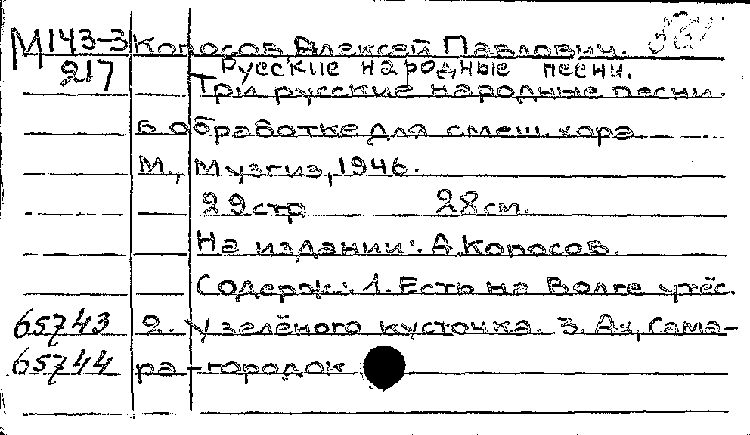 М 143-3 Копосов Алексей Павлович.
217 Русские народные песни.
Три русские народные песни.
в обработке для смеш. хора.
М., Музгиз, 1946.
29 стр 28 см.
На издании: А. Копосов.
Содерж.: 1. Есть на Волге утёс.
65743 2. У зелёного кусточка. 3. Ах, Сама-
65744 ра-городок